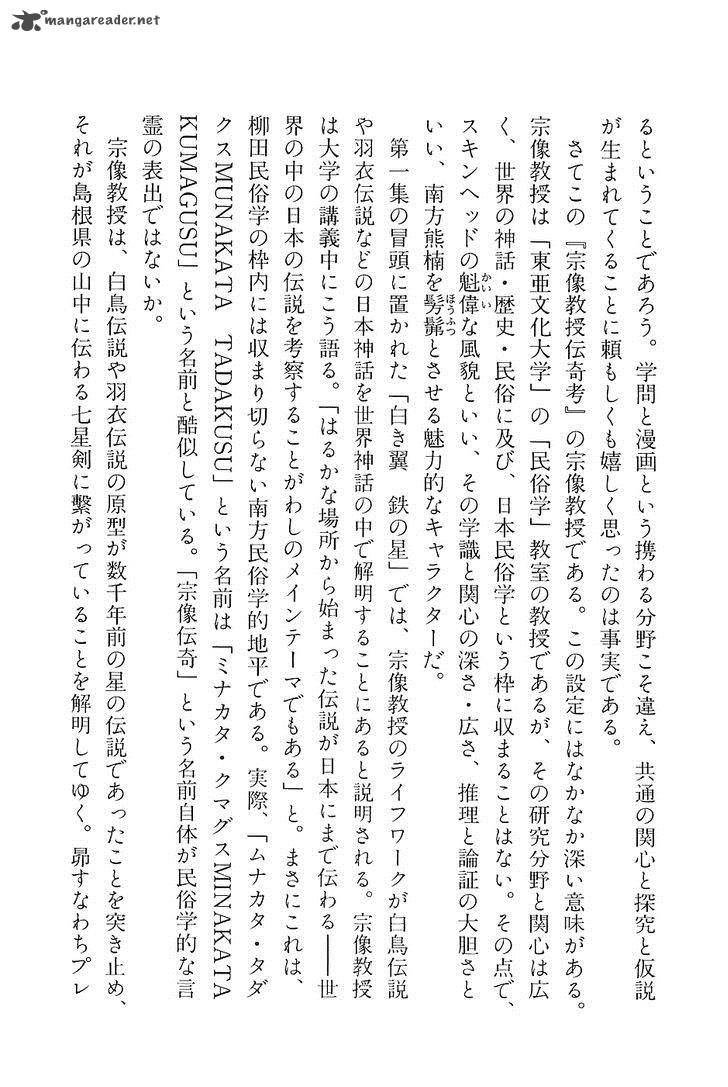 mangareader.net
るということであろう。学問と漫画という携わる分野こそ違え、共通の関心と探究と仮説
が生まれてくることに頼もしくも嬉しく思ったのは事実である。
さてこの『宗像教授伝奇考』の宗像教授である。この設定にはなかなか深い意味がある。
宗像教授は「東亜文化大学」の「民俗学」教室の教授であるが、その研究分野と関心は広
く、世界の神話・歴史・民俗に及び、日本民俗学という枠に収まることはない。その点で、
スキンヘッドの魁偉な風貌といい、その学識と関心の深さ・広さ、推理と論証の大胆さと
かいい
いい、南方熊楠を髣髴とさせる魅力的なキャラクターだ。
ほうふつ
第一集の冒頭に置かれた「白き翼　鉄の星」では、宗像教授のライフワークが白鳥伝説
や羽衣伝説などの日本神話を世界神話の中で解明することにあると説明される。宗像教授
は大学の講義中にこう語る。「はるかな場所から始まった伝説が日本にまで伝わる――世
界の中の日本の伝説を考察することがわしのメインテーマでもある」と。まさにこれは、
柳田民俗学の枠内には収まり切らない南方民俗学的地平である。実際、「ムナカタ・タダ
クスMUNAKATA　TADAKUSU」という名前は「ミナカタ・クマグスMINAKATA
KUMAGUSU」という名前と酷似している。「宗像伝奇」という名前自体が民俗学的な言
霊の表出ではないか。
宗像教授は、白鳥伝説や羽衣伝説の原型が数千年前の星の伝説であったことを突き止め、
それが島根県の山中に伝わる七星剣に繋がっていることを解明してゆく。昴すなわちプレ